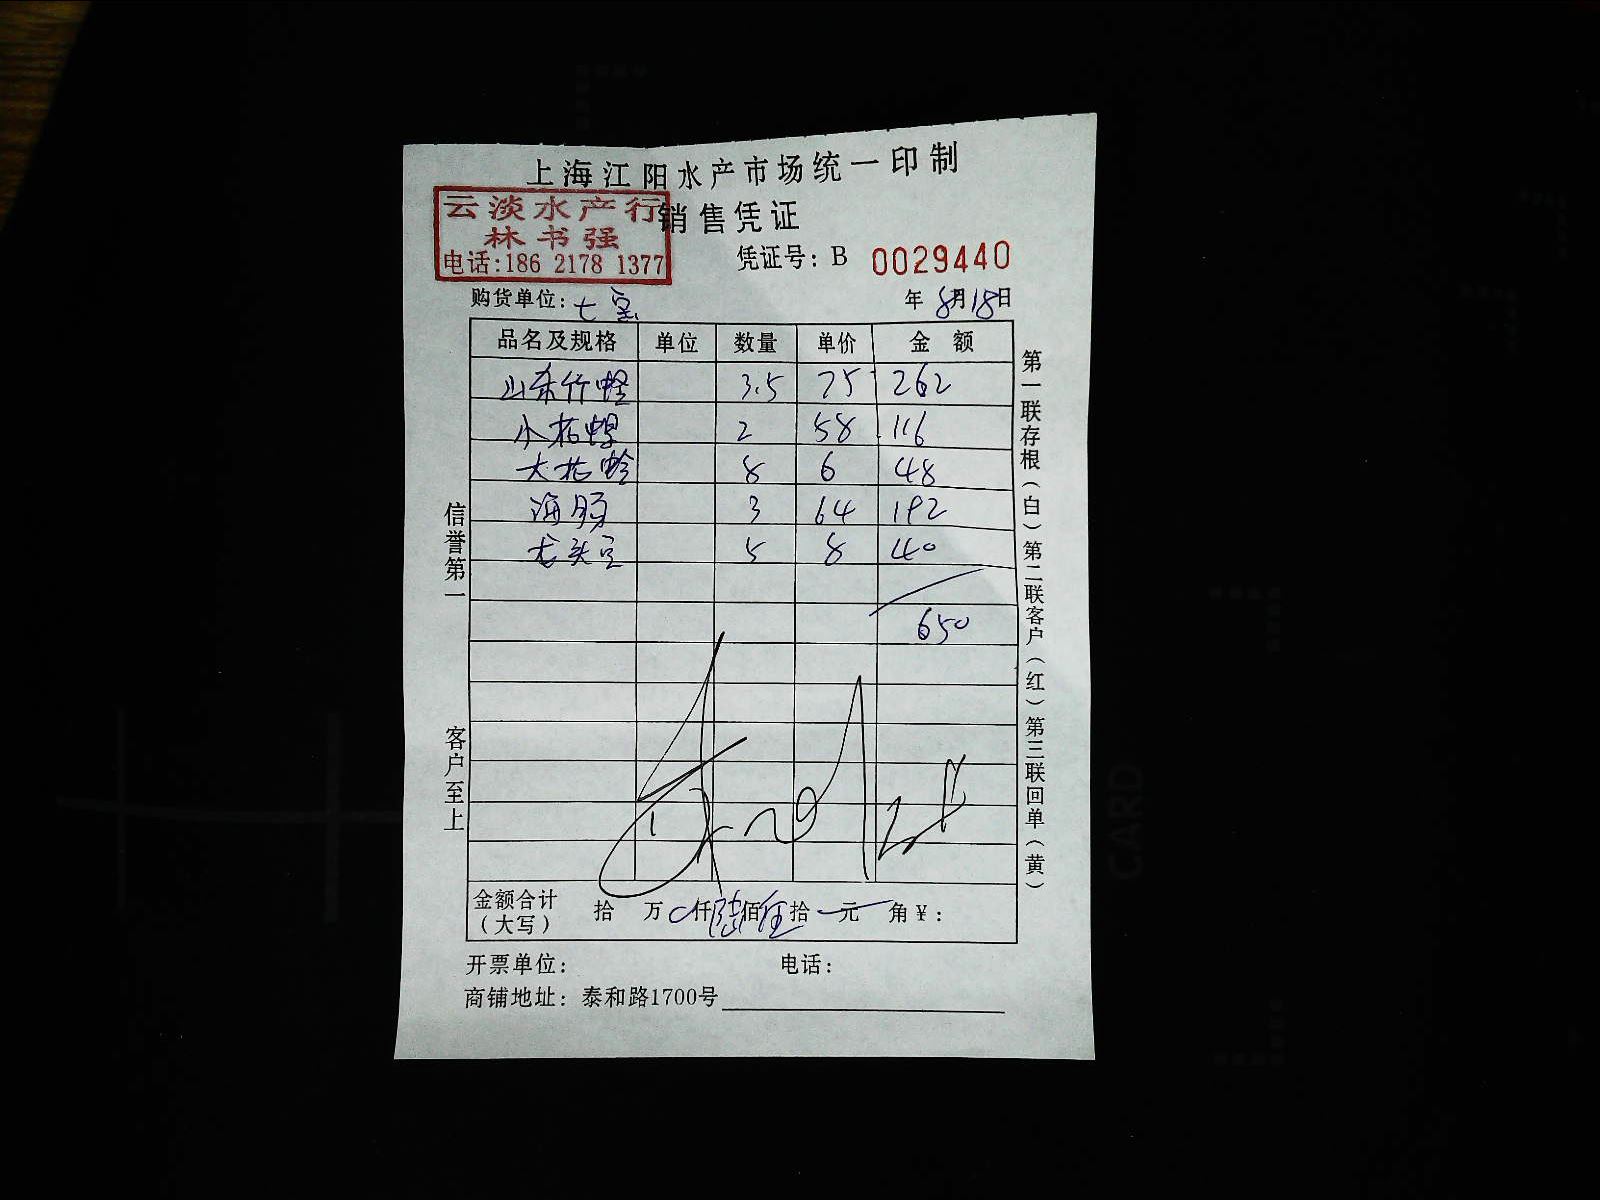 上海江阳水产市场统一印制
云淡水产行
销售凭证
林书强
凭证号：B 0029440
电话:186 2178 1377
购货单位：七宝
年 8月18日
品名及规格 单位 数量 单价 金额
山东竹蛏 3.5 75 262
2 58 116
8 6 48
海肠 3 64 192
龙头 5 8 40
650
金额合计（大写） 拾 万 仟 陆佰伍拾 元 角 ¥：
开票单位： 电话：
商铺地址：泰和路1700号
信誉第一
客户至上
第一联存根（白）第二联客户（红）第三联回单（黄）